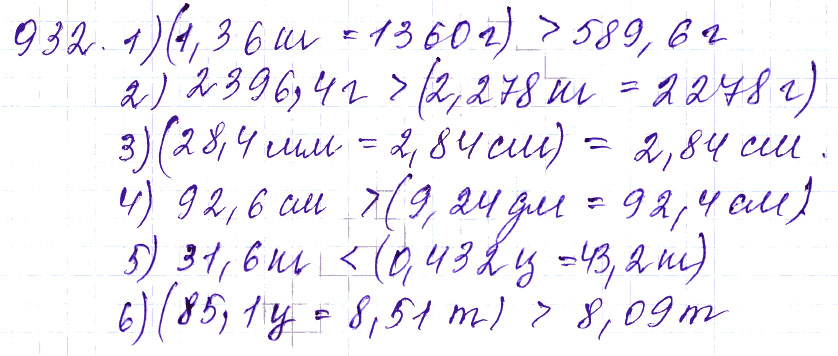 932. 1) (1,36 кг = 1360 г) > 589,6 г
2) 2396,4 г > (2,278 кг = 2278 г)
3) (28,4 мм = 2,84 см) = 2,84 см.
4) 92,6 см > (9,24 дм = 92,4 см)
5) 31,6 кг < (0,432 ц = 43,2 кг)
6) (85,1 ц = 8,51 т) > 8,09 т